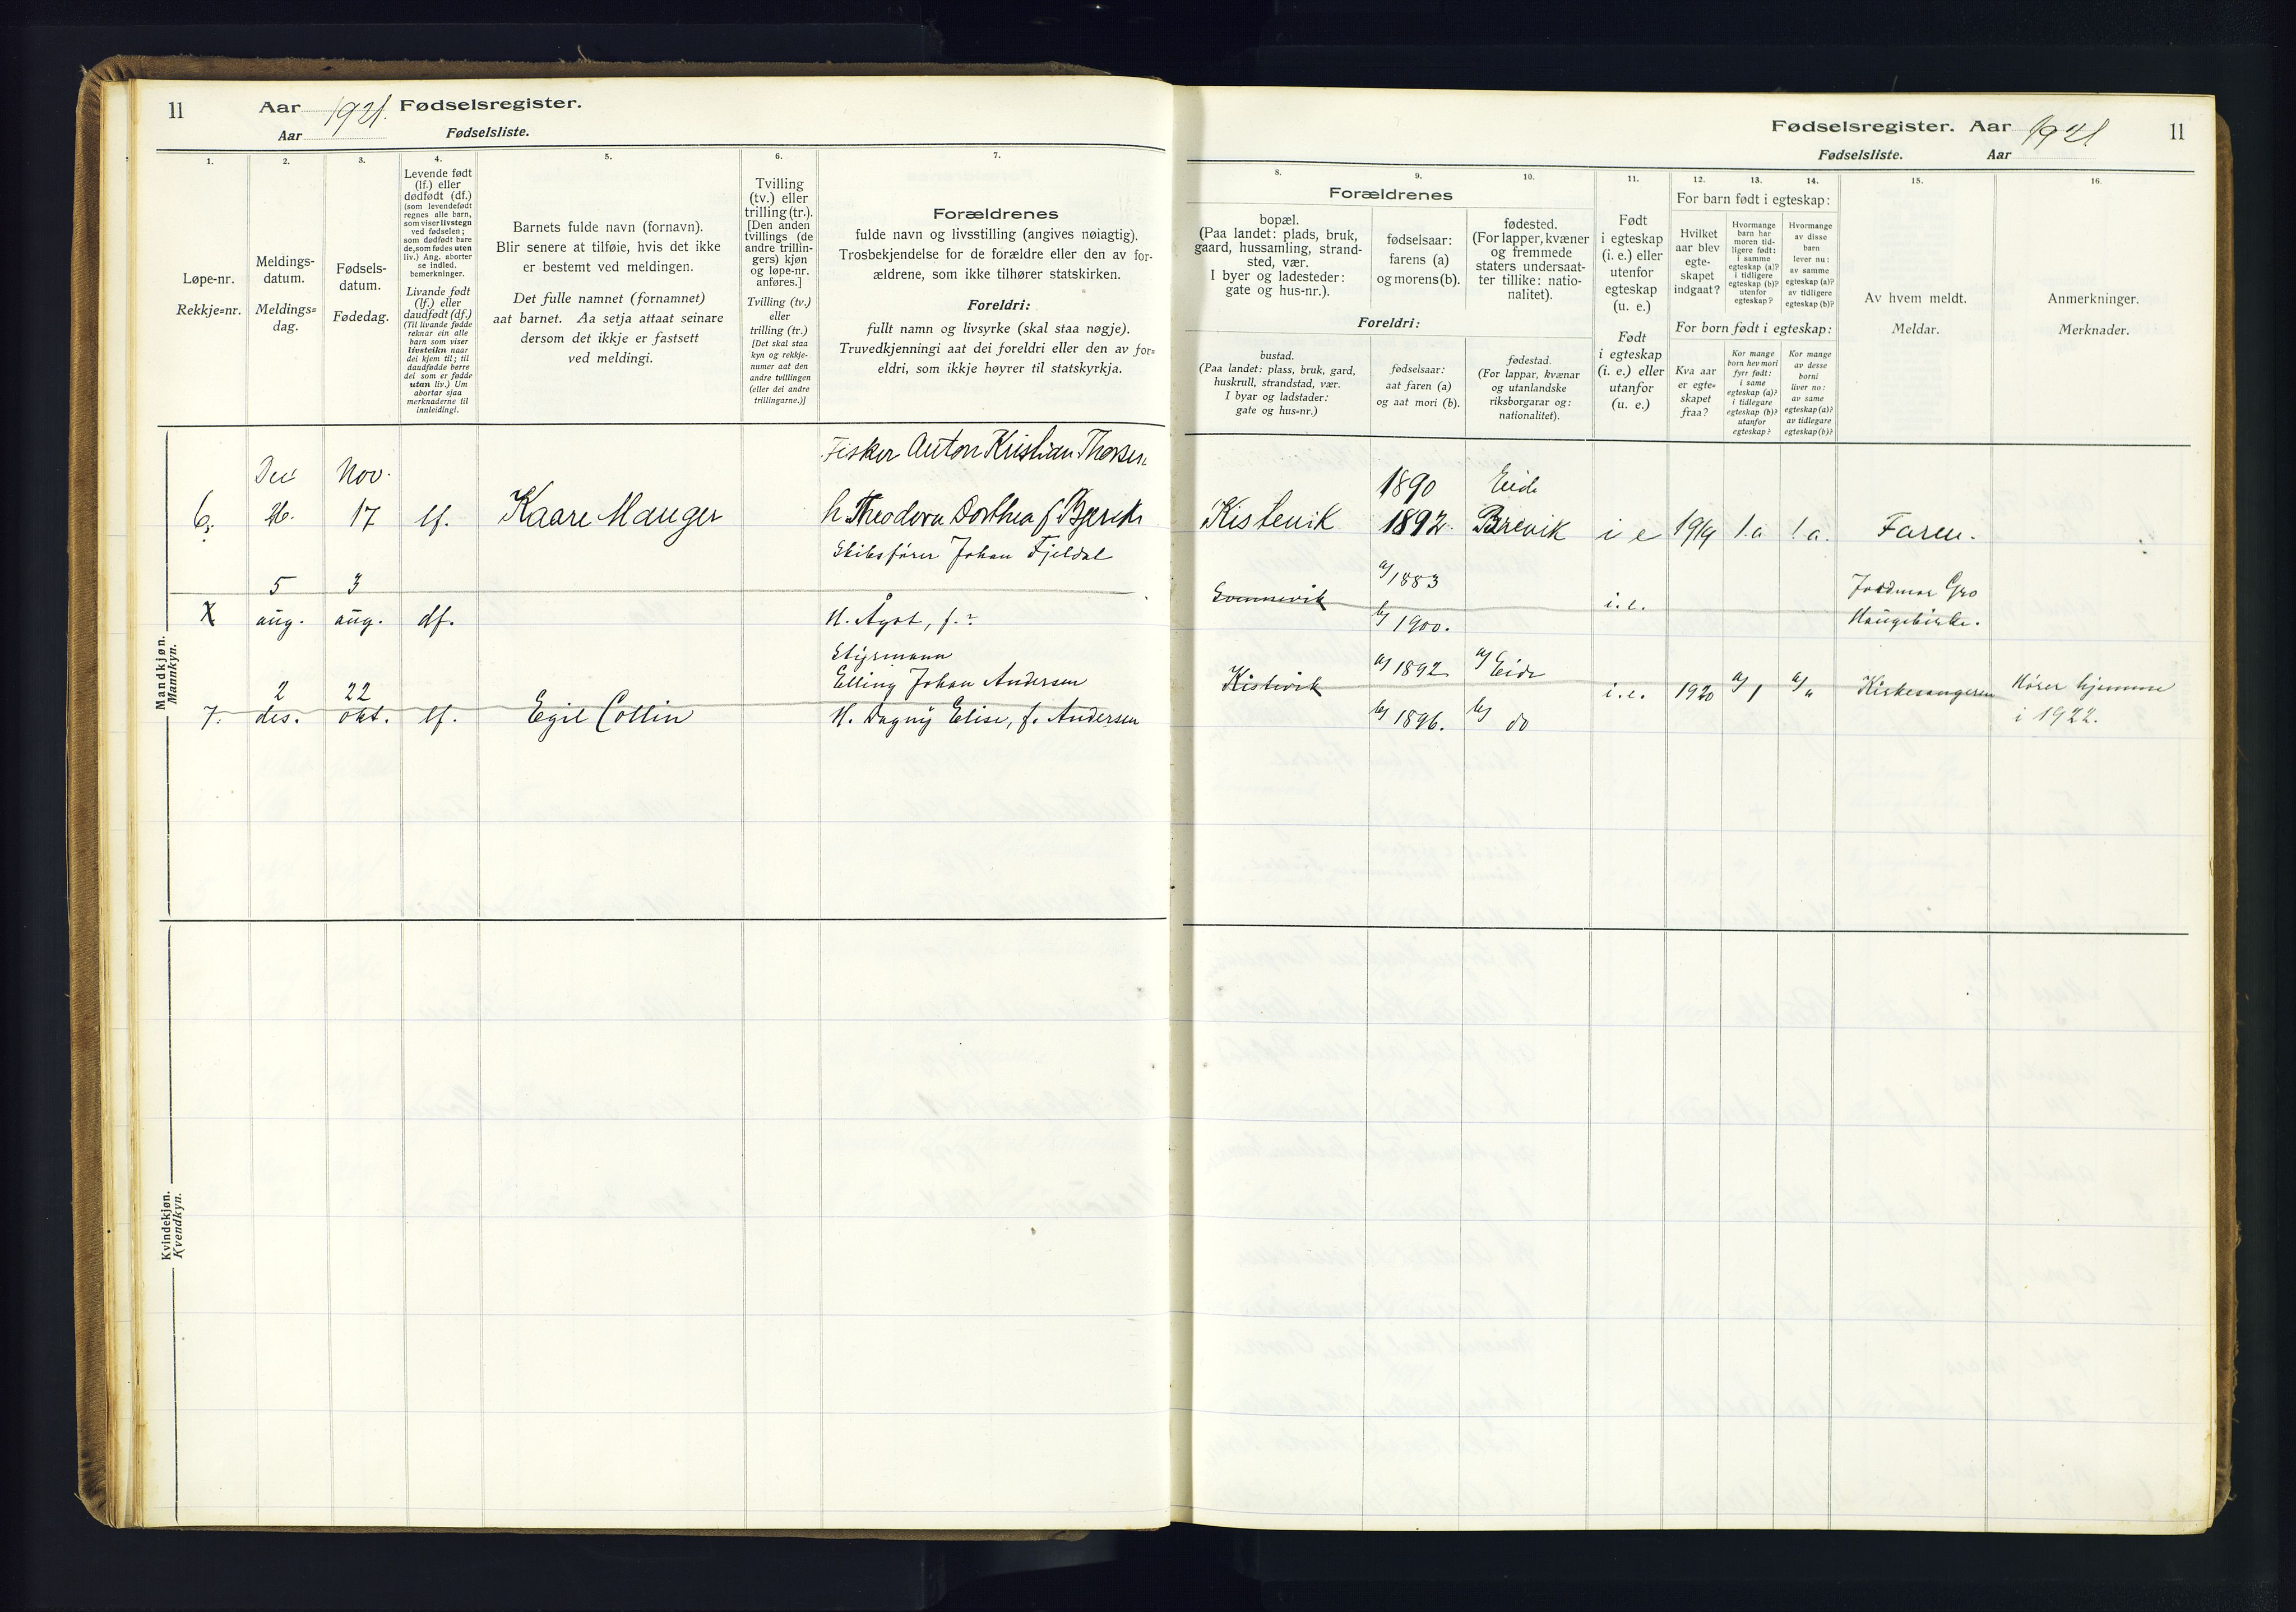 11
Aar 1921. Fødselsregister.
Aar Fødselsliste.
1.
Løpe-nr.
Rekkje=nr.
2.
Meldings-
datum.
Meldings=
dag.
3.
Fødsels-
datum.
Fødedag.
4.
Levende født
(lf.) eller
dødfødt (df.)
(som levendefødt
regnes alle barn,
som viser livstegn
ved fødselen;
som dødfødt bare
de, som fødes uten
liv.) Ang. aborter
se indled.
bemerkninger.
Livande født
(lf.) eller
daudfødt (df.)
(Til livande fødde
reknar ein alle
barn som viser
livsteikn naar
dei kjem til; til
daudfødde berre
dei som er fødde
utan liv.) Um
abortar sjaa
merknaderne til
innleidingi.
5.
Barnets fulde navn (fornavn).
Blir senere at tilføie, hvis det ikke
er bestemt ved meldingen.
Det fulle namnet (fornamnet)
aat barnet. Aa setja attaat seinare
dersom det ikkje er fastsett
ved meldingi.
6.
Tvilling
(tv.) eller
trilling (tr.).
[Den anden
tvillings (de
andre trillin-
gers) kjøn
og løpe-nr.
anføres.]
Tvilling (tv.)
eller
trilling (tr.)
[Det skal staa
kyn og rekkje-
numer aat den
andre tvillingen
(eller dei andre
trillingarne.)]
7.
Forældrenes
fulde navn og livsstilling (angives nøiagtig).
Trosbekjendelse for de forældre eller den av for-
ældrene, som ikke tilhører statskirken.
Foreldri:
fullt namn og livsyrke (skal staa nøgje).
Truvedkjenningi aat dei foreldri eller den av for=
eldri, som ikkje høyrer til statskyrkja.
Mandkjøn.
Mannkyn.
Fisker Anton Kristian Thorsen
Dec Nov.
6. 26. 17 lf. Kaare Mauger h. Theodora Dorthea f. Bjerck
Skibsfører Johan Fjeldal
5 3
X aug. aug. df. H. Ågot, f. ?
Styrmann
Elling Johan Andersen
2 22
7. des. okt. lf. Egil Collin H. Dagny Elise, f. Andersen
Kvindekjøn.
Kvendkyn.
Fødselsregister. Aar 1921 11
Fødselsliste. Aar
8.
Forældrenes
bopæl.
(Paa landet: plads, bruk,
gaard, hussamling, strand-
sted, vær.
I byer og ladesteder:
gate og hus-nr.).
Foreldri:
bustad.
(Paa landet: plass, bruk, gard,
huskrull, strandstad, vær.
I byar og ladstader:
gate og hus=nr.)
9.
fødselsaar:
farens (a)
og morens (b).
fødselsaar:
aat faren (a)
og aat mori (b).
10.
fødested.
(For lapper, kvæner
og fremmede
staters undersaat-
ter tillike: natio-
nalitet).
fødestad.
(For lappar, kvænar
og utanlandske
riksborgarar og:
nationalitet).
11.
Født
i egteskap
(i. e.) eller
utenfor
egteskap
(u. e.)
Født
i egteskap
(i. e.) eller
utanfor
(u. e.)
12. 13. 14.
For barn født i egteskap:
Hvilket
aar blev
egte-
skapet
indgaat?
Hvormange
barn har
moren tid-
ligere født:
i samme
egteskap (a)?
i tidligere
egteskap (b)?
utenfor
egteskap?
Hvormange
av disse
barn
lever nu:
av samme
egteskap (a)?
av tidligere
egteskap (b)?
For born født i egteskap:
Kva aar
er egte=
skapet
fraa?
Kor mange
born hev mori
fyrr født:
i same
egteskap (a)?
i tidlegare
egteskap (b)?
utanfor
egteskap?
Kor mange
av desse
borni
liver no:
av same
egteskap (a)?
av tidlegare
egteskap (b)?
15.
Av hvem meldt.
Meldar.
16.
Anmerkninger.
Merknader.
1890 Eide
Kistevik 1892. Brevik i e 1919 1.a 1.a. Faren.
a/ 1883
Jordmor Gro
i.e.
b/ 1900. Haugekirke.
a/ 1892 a/ Eide
Kistevik i.e. 1920 a/ 1 a/ " Kirkesangeren Hører hjemme
b/ 1896. b/ do i 1922.